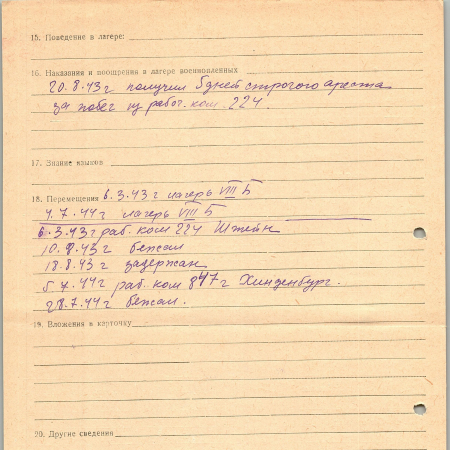 15. Поведение в лагере:
16. Наказания и поощрения в лагере военнопленных
20.8.43г получил 5 дней строгого ареста
за побег из работ. ком 224.
17. Знание языков
18. Перемещения 6.3.43г лагерь VIII Б
4.7.44г лагерь VIII Б
6.3.43г раб. ком 224 Штейн
10.8.43г бежал
18.8.43г задержан
5.4.44г раб. ком 847г Хинденбург.
28.7.44г бежал.
19. Вложения в карточку
20. Другие сведения